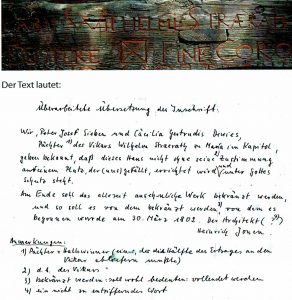 WILHELM STRAERAT
EINE CORO
Der Text lautet:
Überarbeitete Übersetzung der Inschrift.
Wir, Peter Josef Sieben und Cäcilia Gertrudis Denies,
Pächter 1) des Vikars Wilhelm Straerath von Maria im Kapitol,
geben bekannt, daß dieses Haus nicht ohne seine 2) Zustimmung
auf einem Platz, der (uns) gefällt, errichtet wird und unter Gottes
Schutz steht.
Am Ende soll das allezeit ansehnliche Werk bekränzt werden,
und so soll es von dem bekränzt werden, 3) von dem es
begonnen wurde am 30. März 1802. Der Architekt (4)
Heinrich
Anmerkungen:
1) Pächter = Halbwinner (einer, der die Hälfte des Ertrages an den
Vikar abliefern mußte)
2) d.h. des Vikars
3) bekränzt werden: soll wohl bedeuten: vollendet werden
4) ein nicht zu entzifferndes Wort